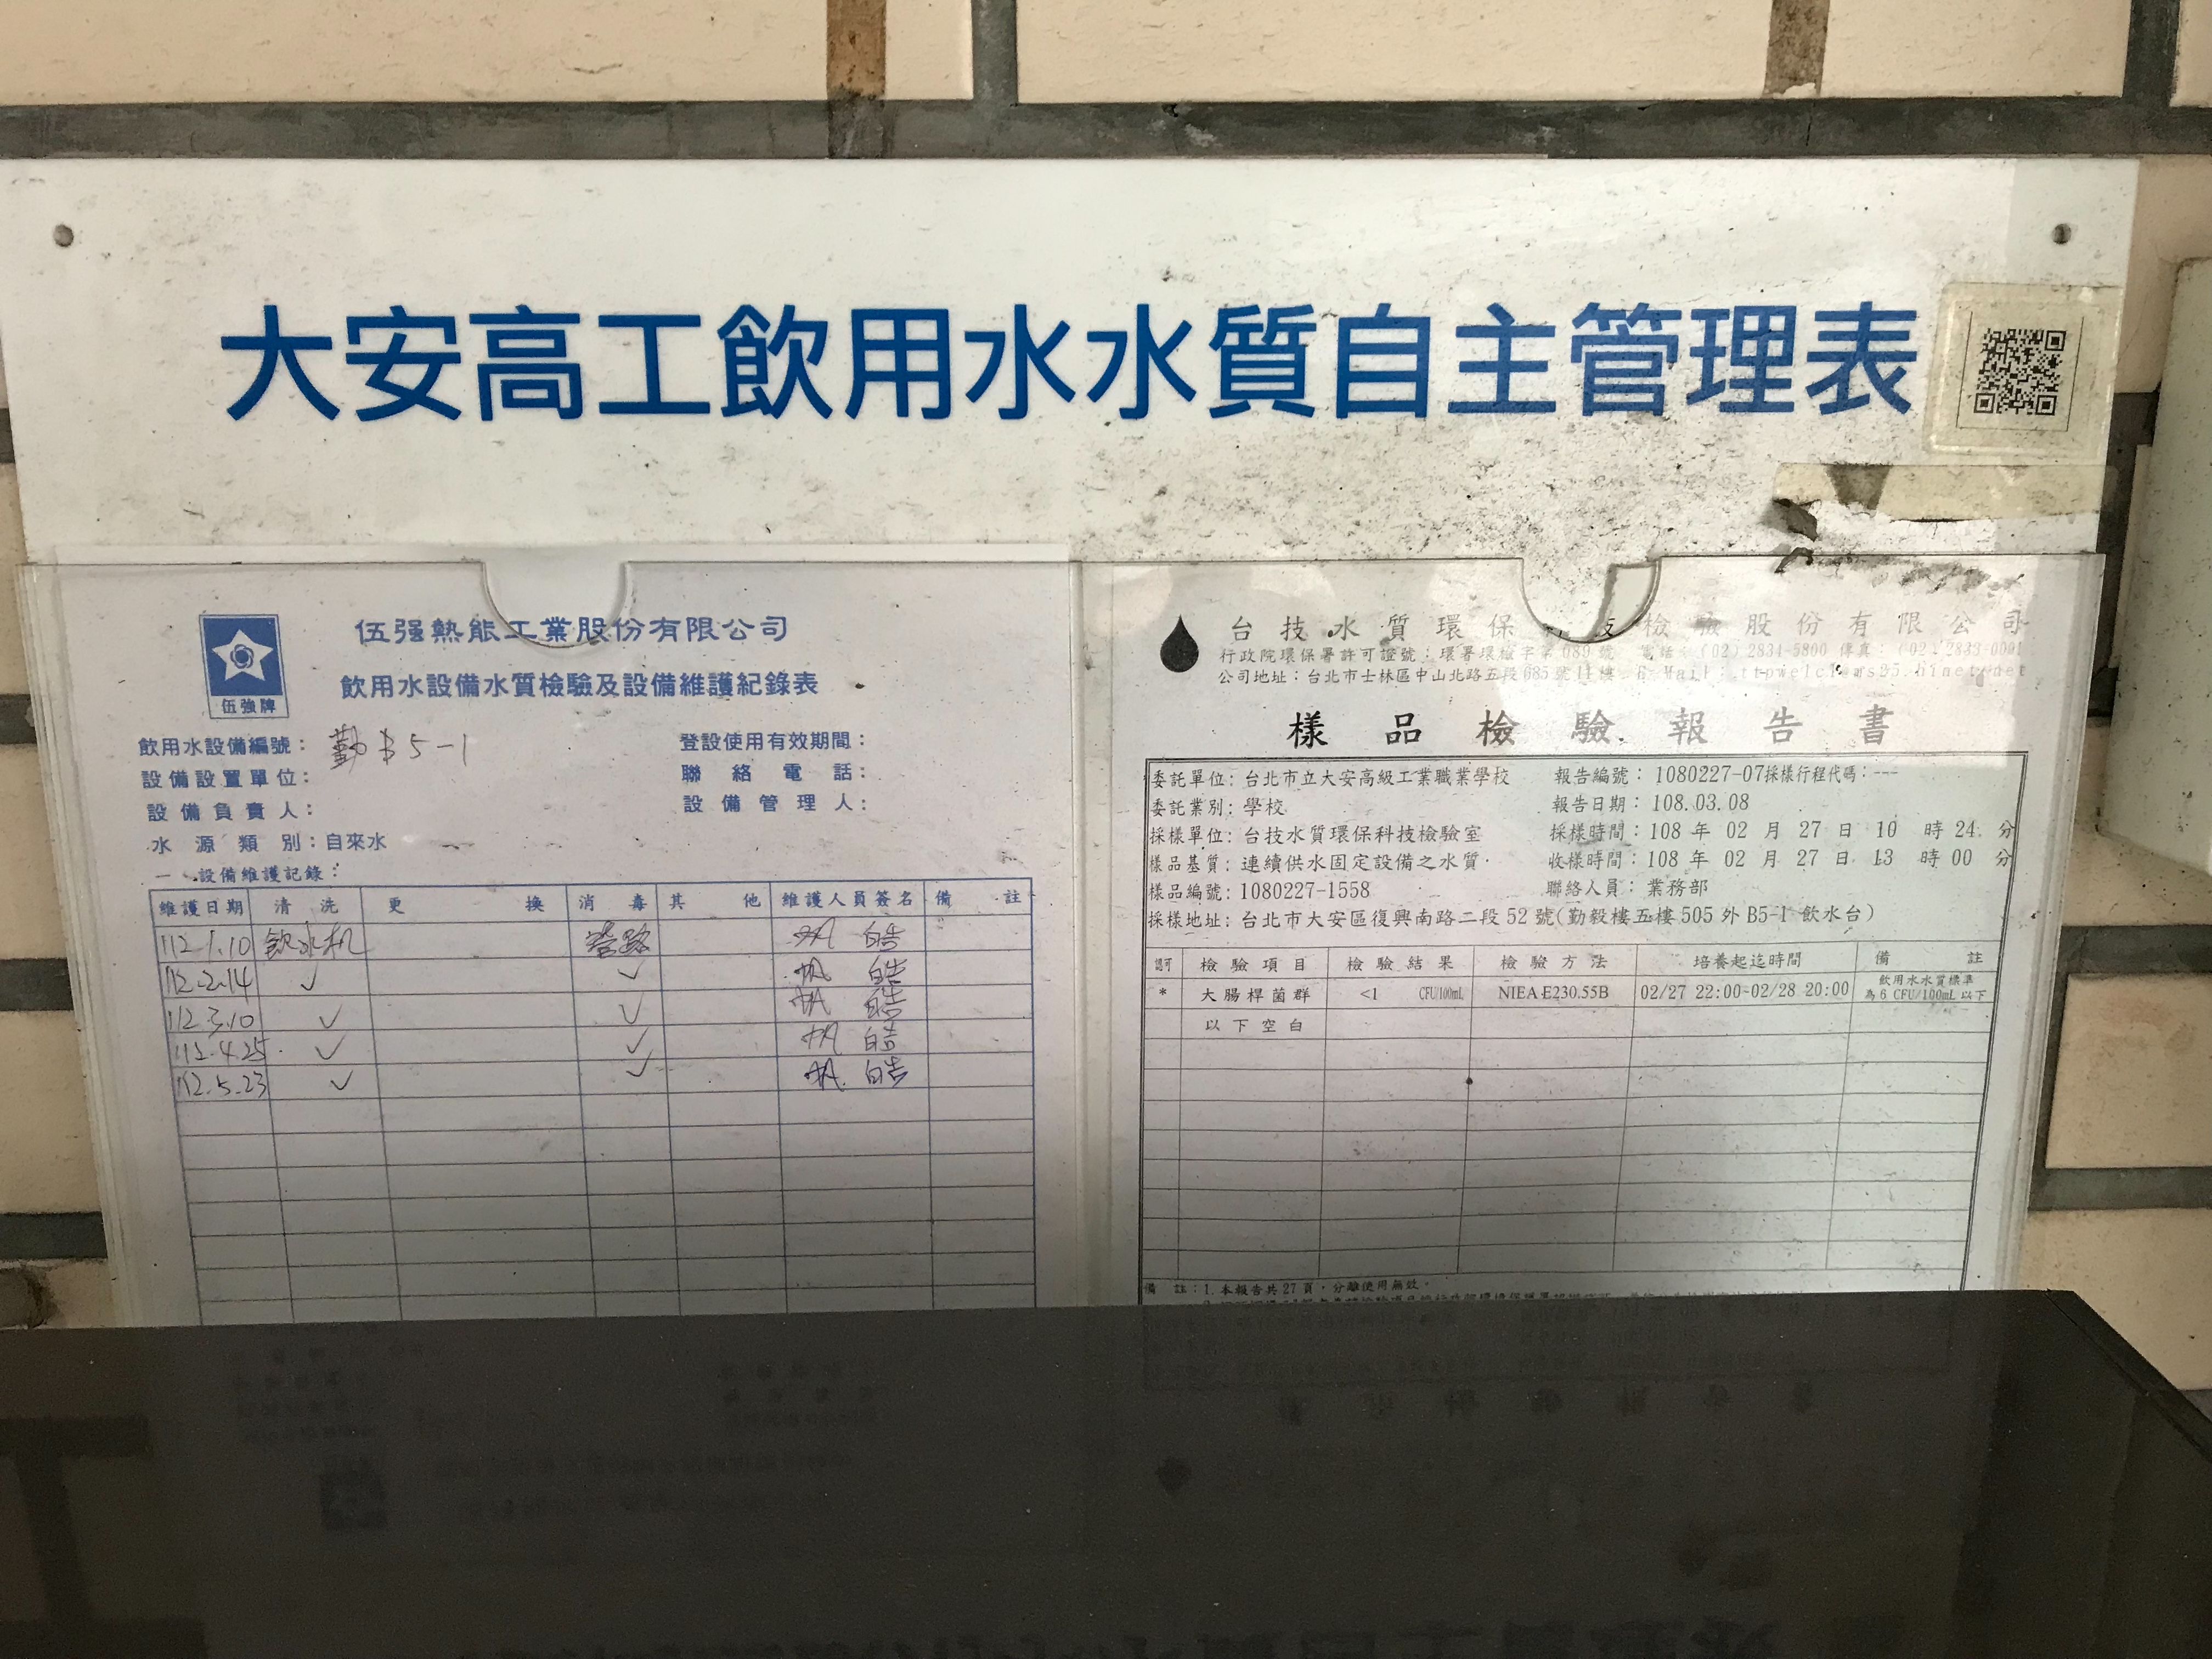 大安高工飲用水水質自主管理表
伍强熱能工業股份有限公司
飲用水設備水質檢驗及設備維護紀錄表
伍強牌
飲用水設備編號: 勤B5-1
登設使用有效期間:
設備設置單位:
聯絡電話:
設備負責人:
設備管理人:
水源類別:自來水
一、設備維護記錄:
維護日期 清洗 更換 消毒 其他 維護人員簽名 備註
112.1.10 飲水机 管路
112.2.14 ✓ ✓
112.3.10 ✓ ✓
112.4.25 ✓ ✓
112.5.23 ✓ ✓
台技水質環保 檢驗股份有限公司
行政院環保署許可證號:環署環檢字第089號 電話:(02)2834-5800 傳真:(02)2833-0001
公司地址:台北市士林區中山北路五段685號11樓
樣品檢驗報告書
委託單位:台北市立大安高級工業職業學校 報告編號:1080227-07採樣行程代碼:---
委託業別:學校 報告日期:108.03.08
採樣單位:台技水質環保科技檢驗室 採樣時間:108年02月27日10時24分
樣品基質:連續供水固定設備之水質 收樣時間:108年02月27日13時00分
樣品編號:1080227-1558 聯絡人員:業務部
採樣地址:台北市大安區復興南路二段52號(勤毅樓五樓505外B5-1飲水台)
認可 檢驗項目 檢驗結果 檢驗方法 培養起迄時間 備註
* 大腸桿菌群 <1 CFU/100mL NIEA E230.55B 02/27 22:00-02/28 20:00 飲用水水質標準為6 CFU/100mL以下
以下空白
備註:1.本報告共27頁,分離使用無效。